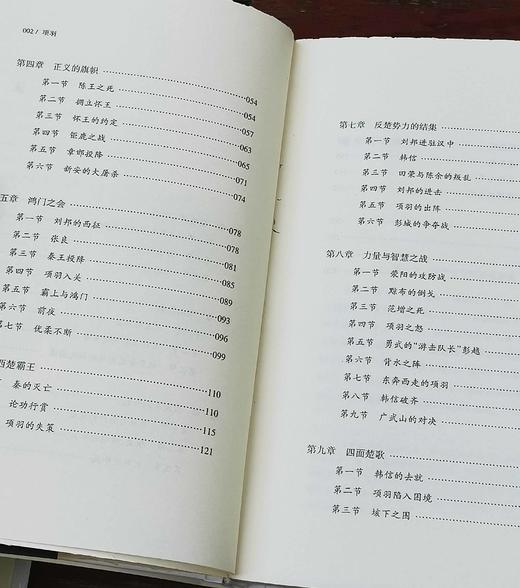 002 / 项羽
第四章 正义的旗帜 054
第一节 陈王之死 054
第二节 拥立怀王 057
第三节 怀王的约定 063
第四节 钜鹿之战 065
第五节 章邯投降 071
第六节 新安的大屠杀 074
五章 鸿门之会 078
第一节 刘邦的西征 078
第二节 张良 081
第三节 秦王投降 085
第四节 项羽入关 089
第五节 霸上与鸿门 093
第六节 前夜 096
第七节 优柔不断 099
西楚霸王 110
秦的灭亡 110
论功行赏 115
项羽的失策 121
第七章 反楚势力的结集
第一节 刘邦进驻汉中
第二节 韩信
第三节 田荣与陈余的叛乱
第四节 刘邦的进击
第五节 项羽的出阵
第六节 彭城的争夺战
第八章 力量与智慧之战
第一节 荥阳的攻防战
第二节 黥布的倒戈
第三节 范增之死
第四节 项羽之怒
第五节 勇武的“游击队长”彭越
第六节 背水之阵
第七节 东奔西走的项羽
第八节 韩信破齐
第九节 广武山的对决
第九章 四面楚歌
第一节 韩信的去就
第二节 项羽陷入困境
第三节 垓下之围